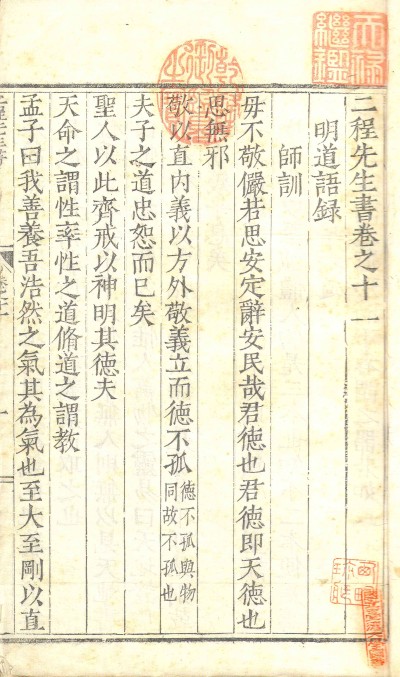 二程先生書卷之十一
明道語録
師訓
毋不敬儼若思安定辭安民哉君徳也君徳即天徳也
思無邪
敬以直内義以方外敬義立而徳不孤 徳不孤與物同故不孤也
夫子之道忠恕而已矣
聖人以此齊戒以神明其徳夫
天命之謂性率性之道脩道之謂教
孟子曰我善養吾浩然之氣其為氣也至大至剛以直
天禄繼鑑